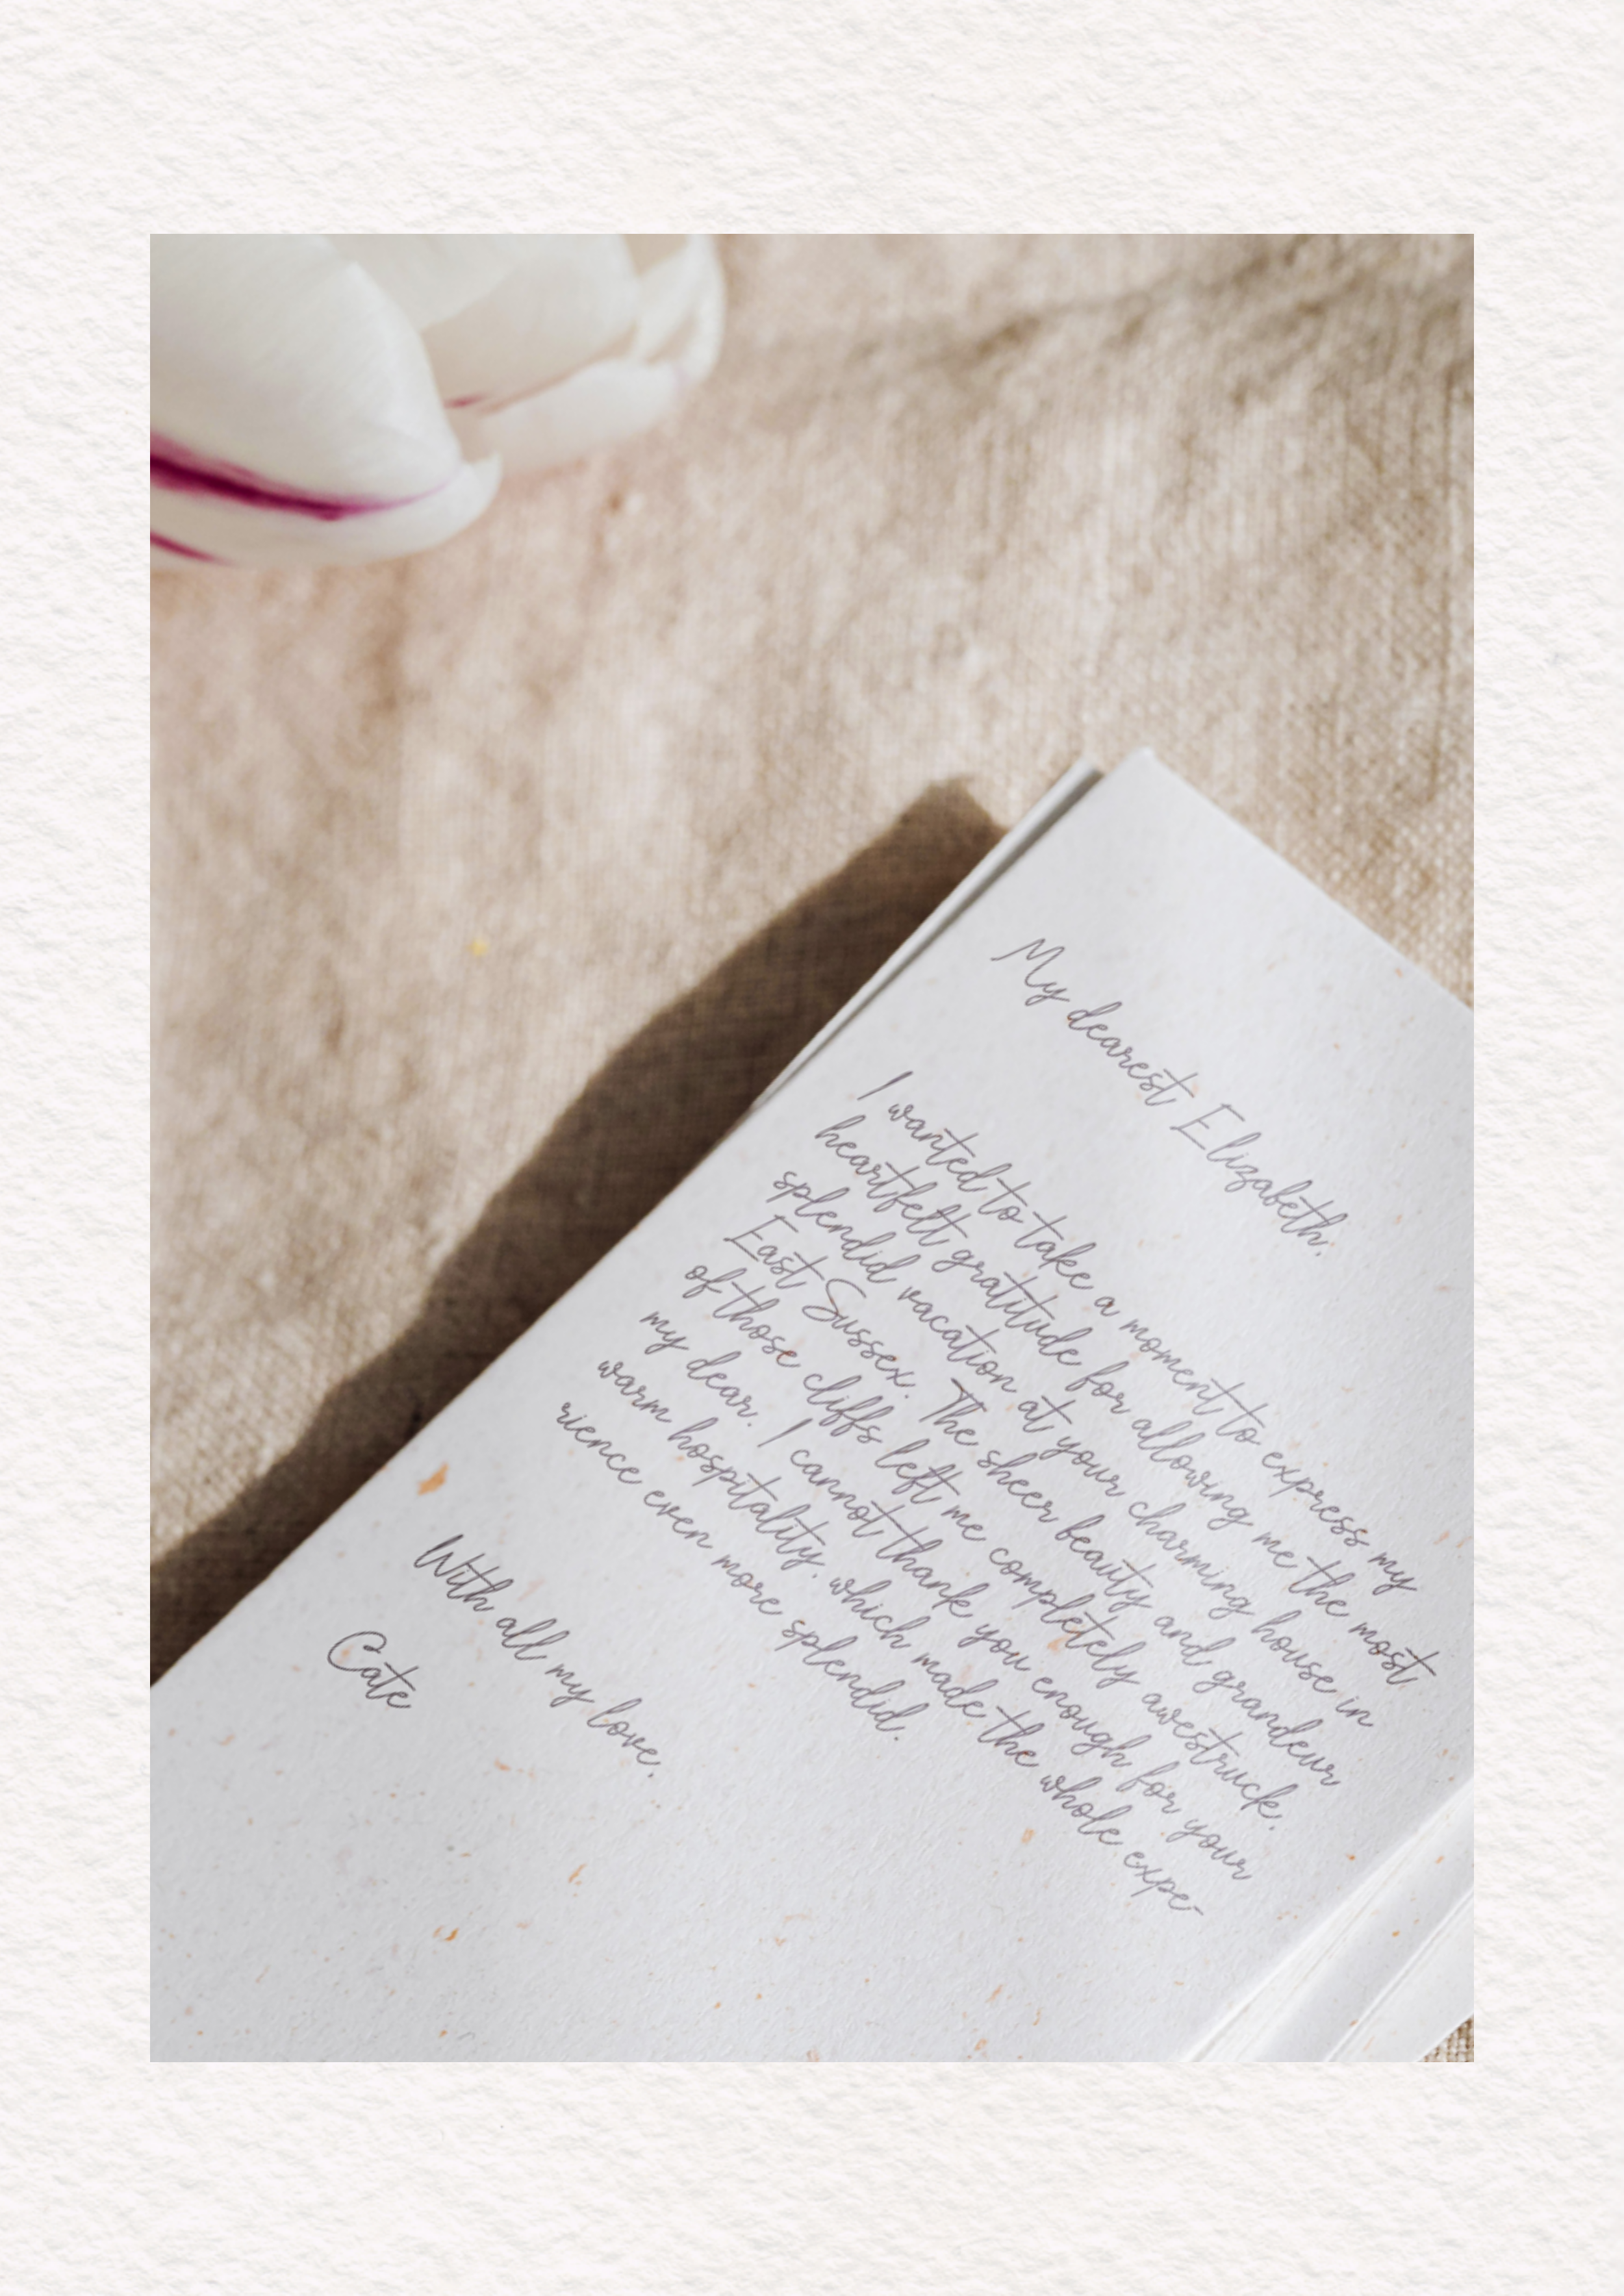 My dearest Elizabeth,
I wanted to take a moment to express my
heartfelt gratitude for allowing me the most
splendid vacation at your charming house in
East Sussex. The sheer beauty and grandeur
of those cliffs left me completely awestruck,
my dear. I cannot thank you enough for your
warm hospitality, which made the whole expe-
rience even more splendid.
With all my love,
Cate